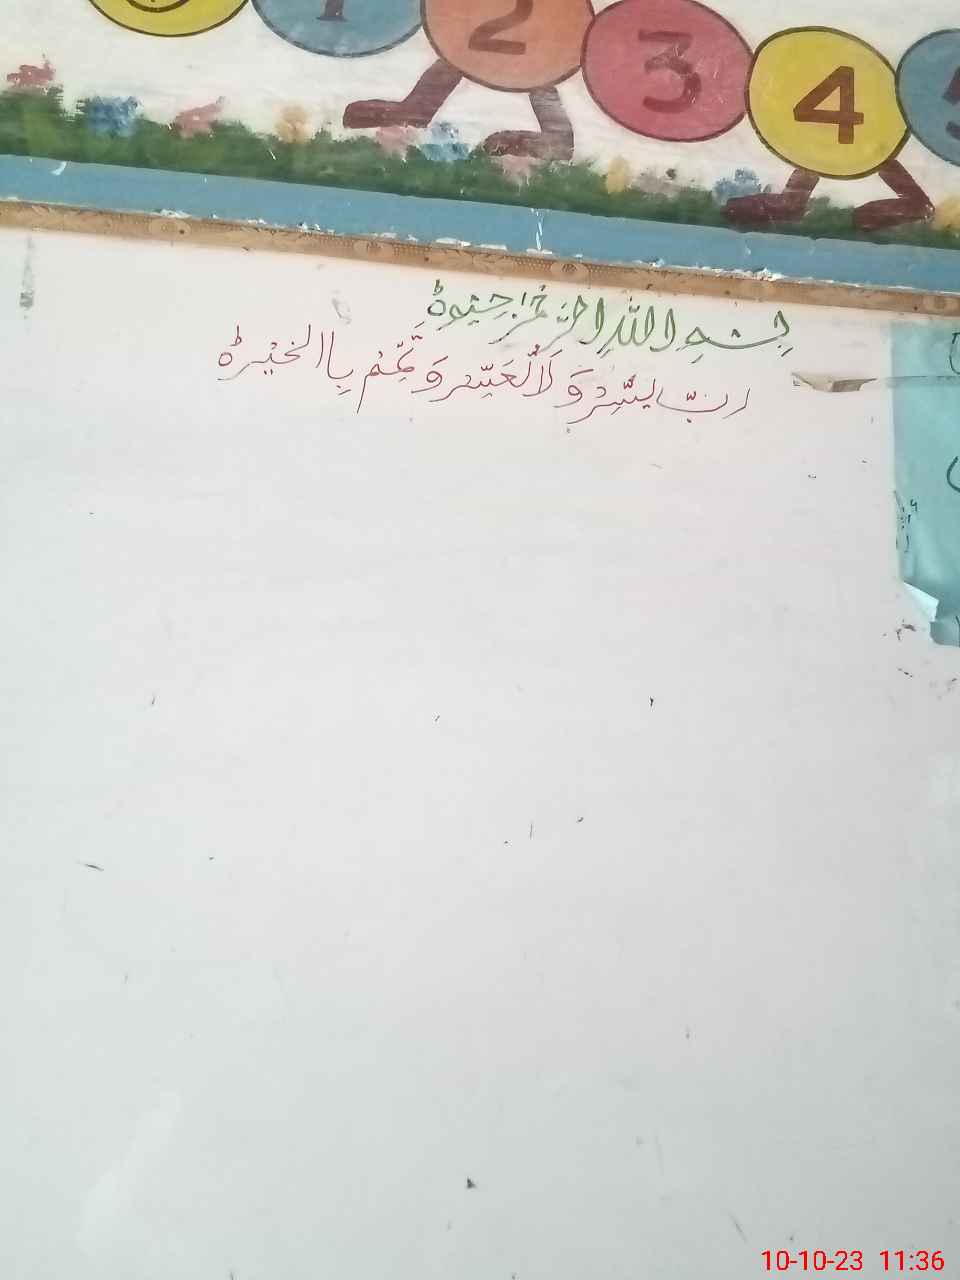 1 2 3 4 5
بِسْمِ اللّٰهِ الرَّحْمٰنِ الرَّحِيْمِ
رَبِّ يَسِّرْ وَلَا تُعَسِّرْ وَتَمِّمْ بِاالْخَيْرِ
10-10-23 11:36